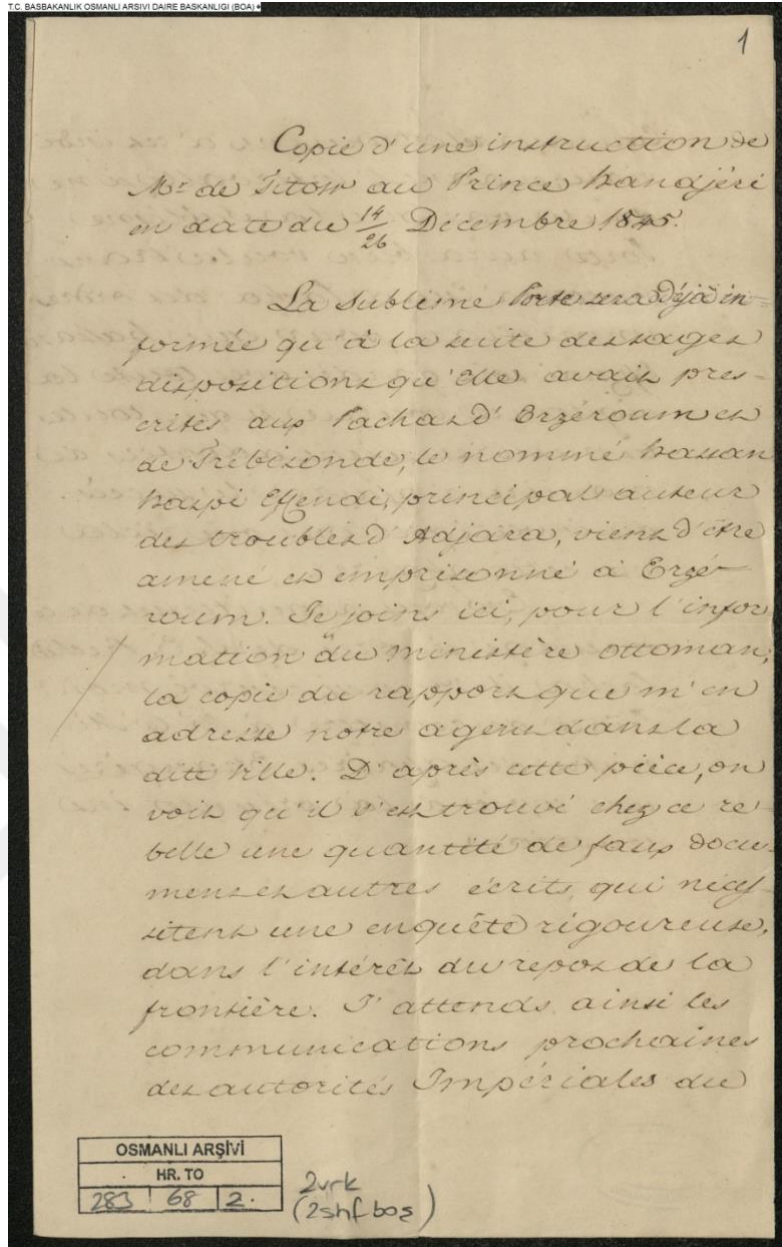 T.C. BASBAKANLIK OSMANLI ARSIVI DAIRE BASKANLIGI (BOA)
1
Copie d'une instruction de
Mr. de Titow au Prince Handjéri
en date du 14/26 Décembre 1845.
La Sublime Porte sera déjà in-
formée qu'à la suite des sages
dispositions qu'Elle avait pres-
crites aux Pachas d'Erzéroum et
de Trébisonde, le nommé Hassan
Haspi Effendi, principal auteur
des troubles d'Adjara, vient d'être
amené et emprisonné à Erzé-
roum. Je joins ici, pour l'infor
mation du ministère ottoman,
la copie du rapport que m'en
adresse notre agent dans la
dite ville. D'après cette pièce, on
voit qu'il s'est trouvé chez ce re-
belle une quantité de faux docu-
mens et autres écrits, qui néces-
sitent une enquête rigoureuse,
dans l'intérêt du repos de la
frontière. J'attends ainsi les
communications prochaines
des autorités Impériales du
OSMANLI ARŞİVİ
HR. TO
283 68 2.
2vrk
(2shf boş)